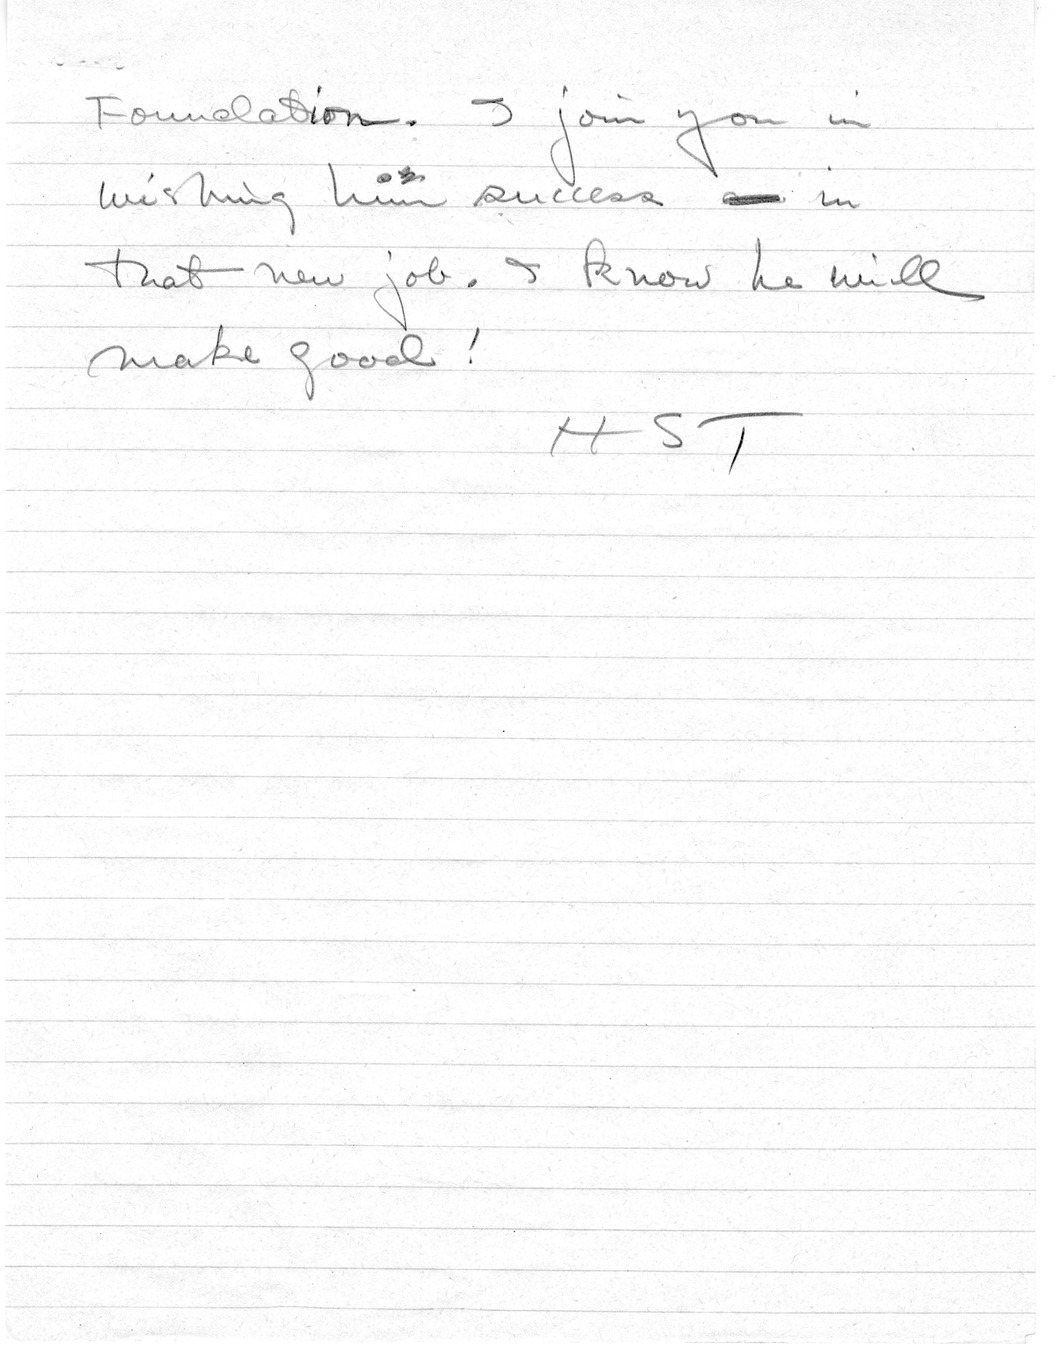 Foundation. I join you in
wishing him success in
that new job. I know he will
make good!
HST